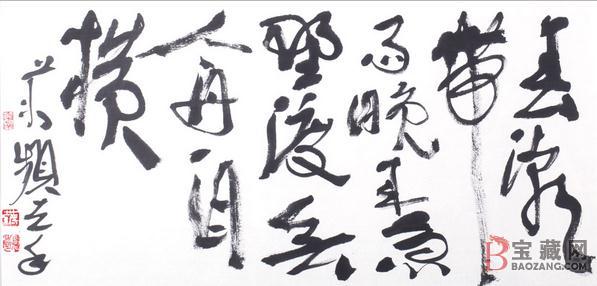 春潮
帶
雨晚来急
野渡無
人舟自
横
宝藏网
BAOZANG.COM